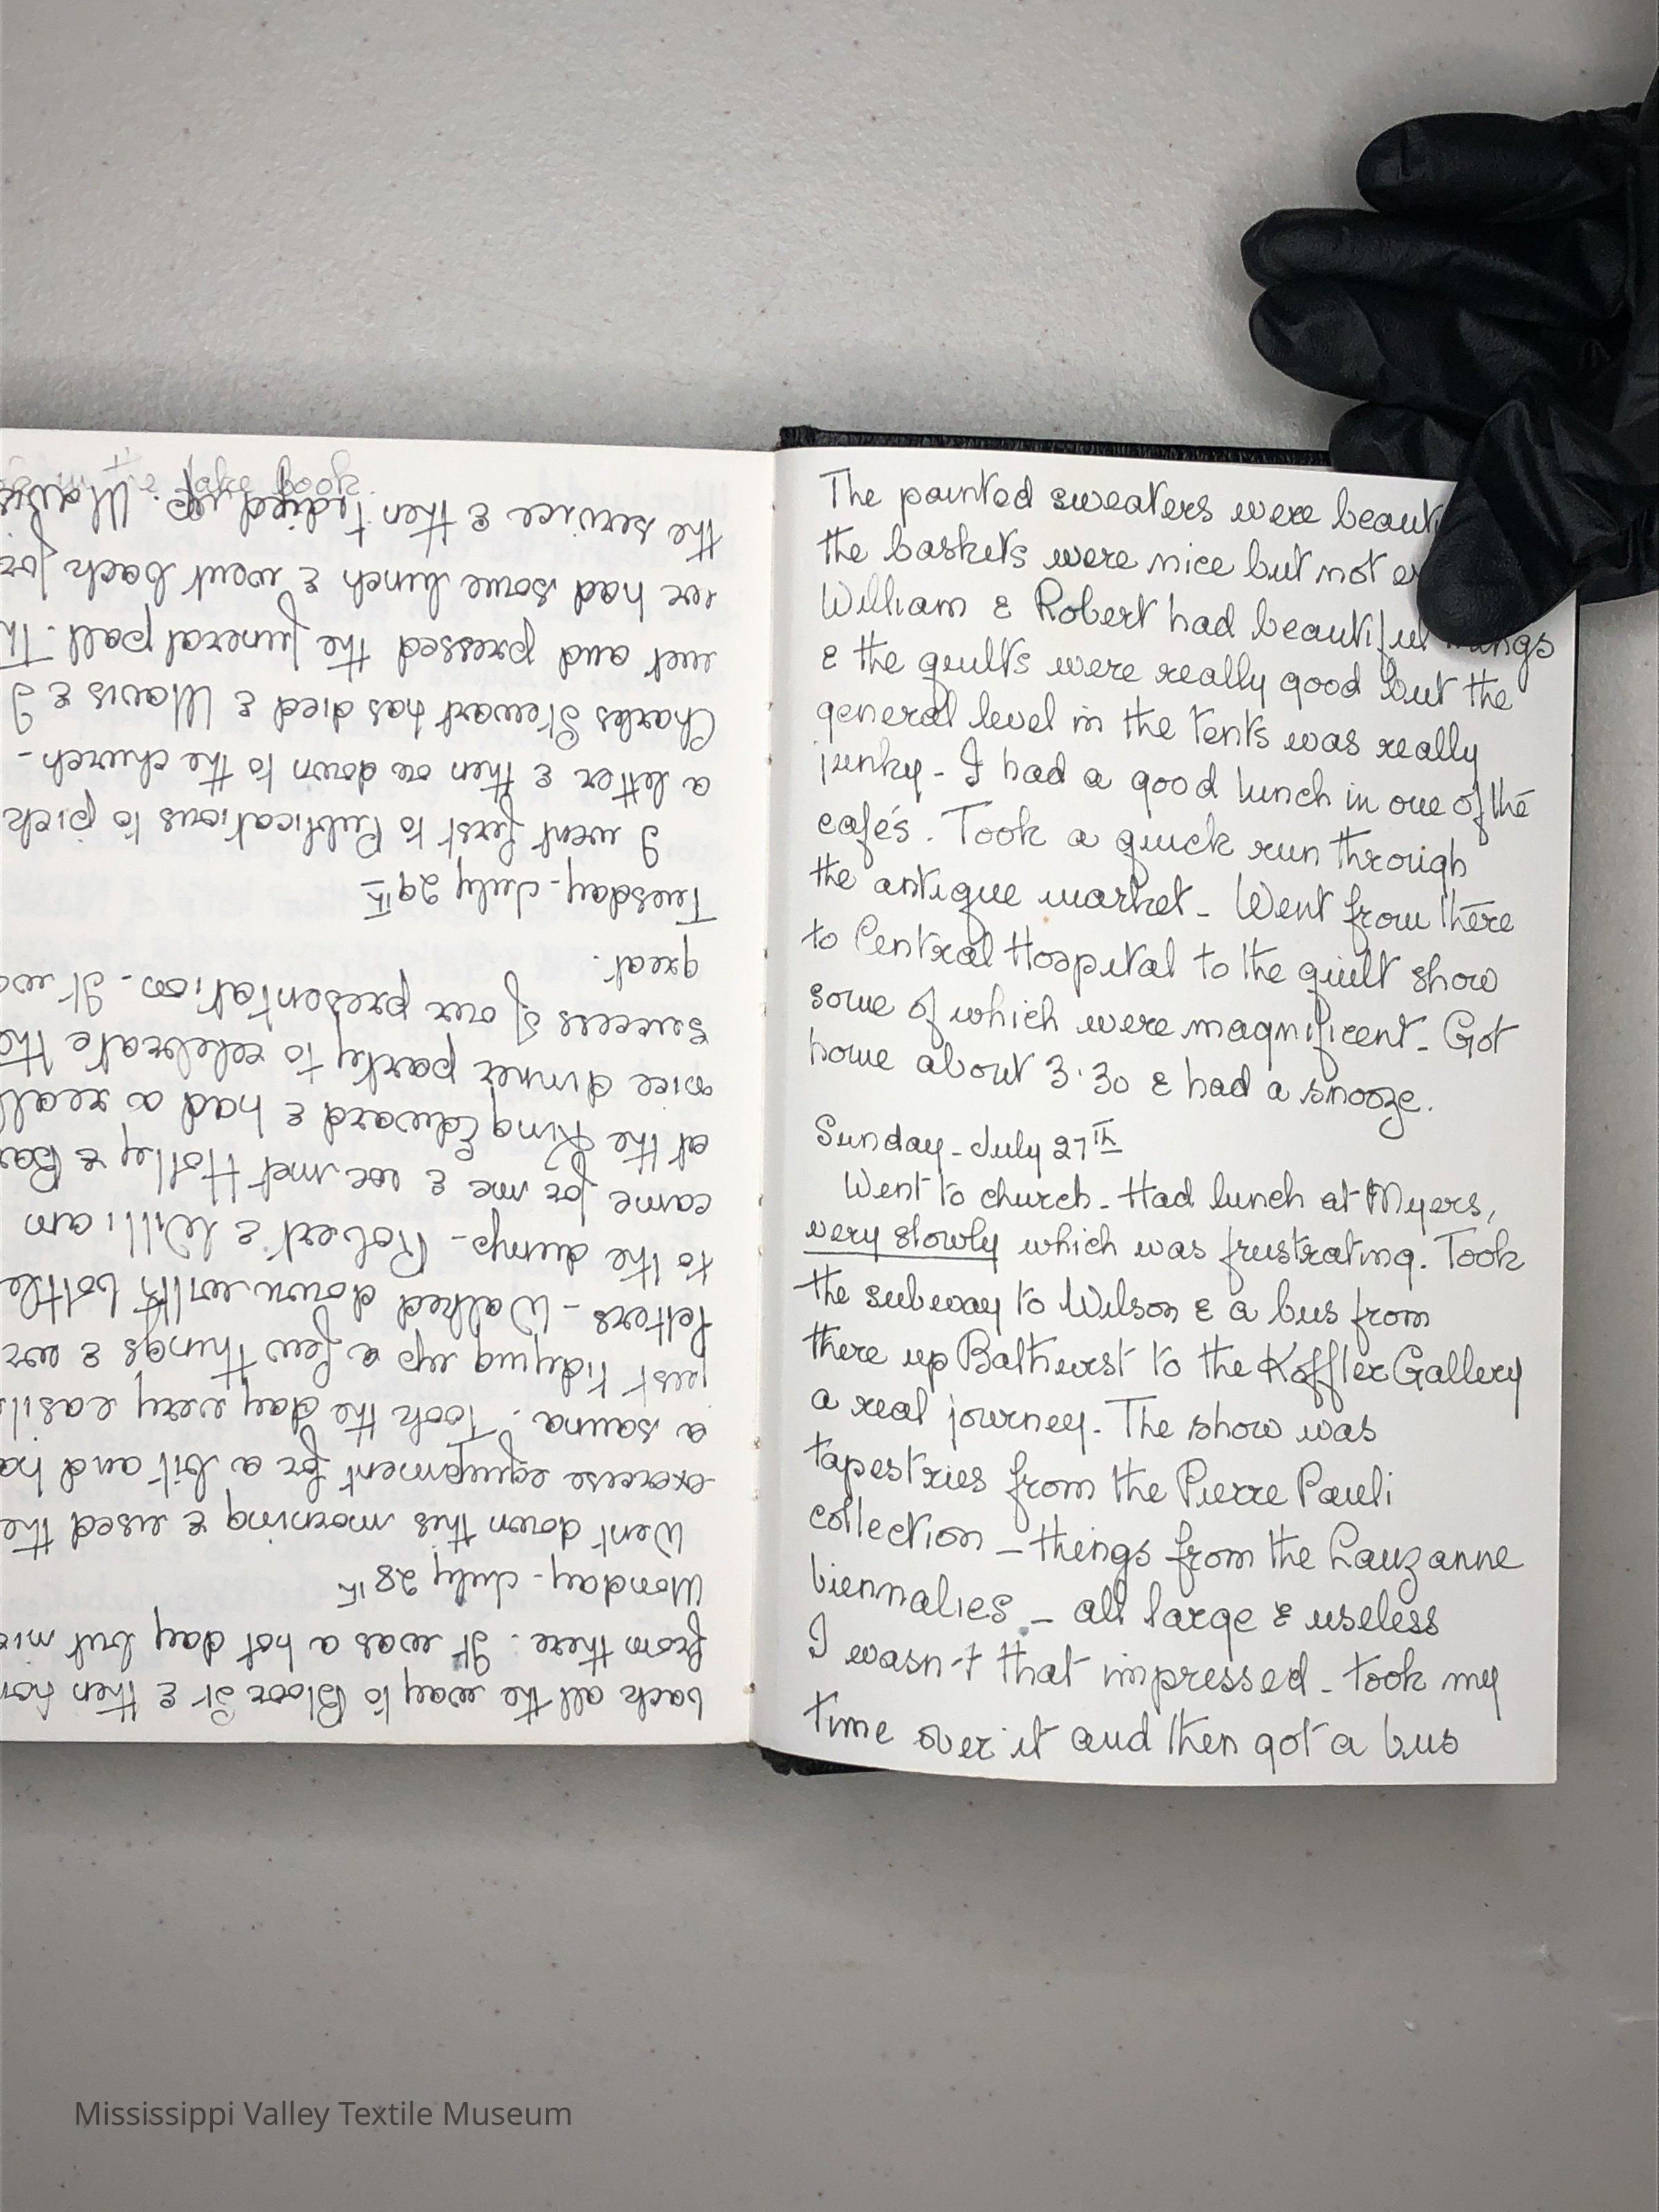 The painted sweaters were beaut
the baskets were nice but not
William & Robert had beautiful things
& the quilts were really good but the
general level in the tents was really
junky - I had a good lunch in one of the
cafés. Took a quick run through
the antique market - Went from there
to Central Hospital to the quilt show
some of which were magnificent - Got
home about 3.30 & had a snooze.
Sunday - July 27th
Went to church - Had lunch at Myers,
very slowly which was frustrating. Took
the subway to Wilson & a bus from
there up Bathurst to the Koffler Gallery
a real journey. The show was
tapestries from the Pierre Pauli
collection - things from the Lauzanne
biennalies - all large & useless
I wasn't that impressed - took my
time over it and then got a bus
back all the way to Bloor St & then
from there. It was a hot day but
Monday - July 28th
Went down this morning & used the
exercise equipment for a bit and ha
a sauna. Took the day very easil
just tidying up a few things &
letters - Walked down with bottle
to the dump - Robert & William
came for me & we met Holley & Ba
at the King Edward & had a real
nice dinner party to celebrate the
success of our presentation. It wa
great.
Tuesday - July 29th
I went first to Publications to pick
a letter & then on down to the church -
Charles Stewart has died & Mavis & I
met and pressed the funeral pall. Th
we had some lunch & went back for
the service & then tidied up. Mavis